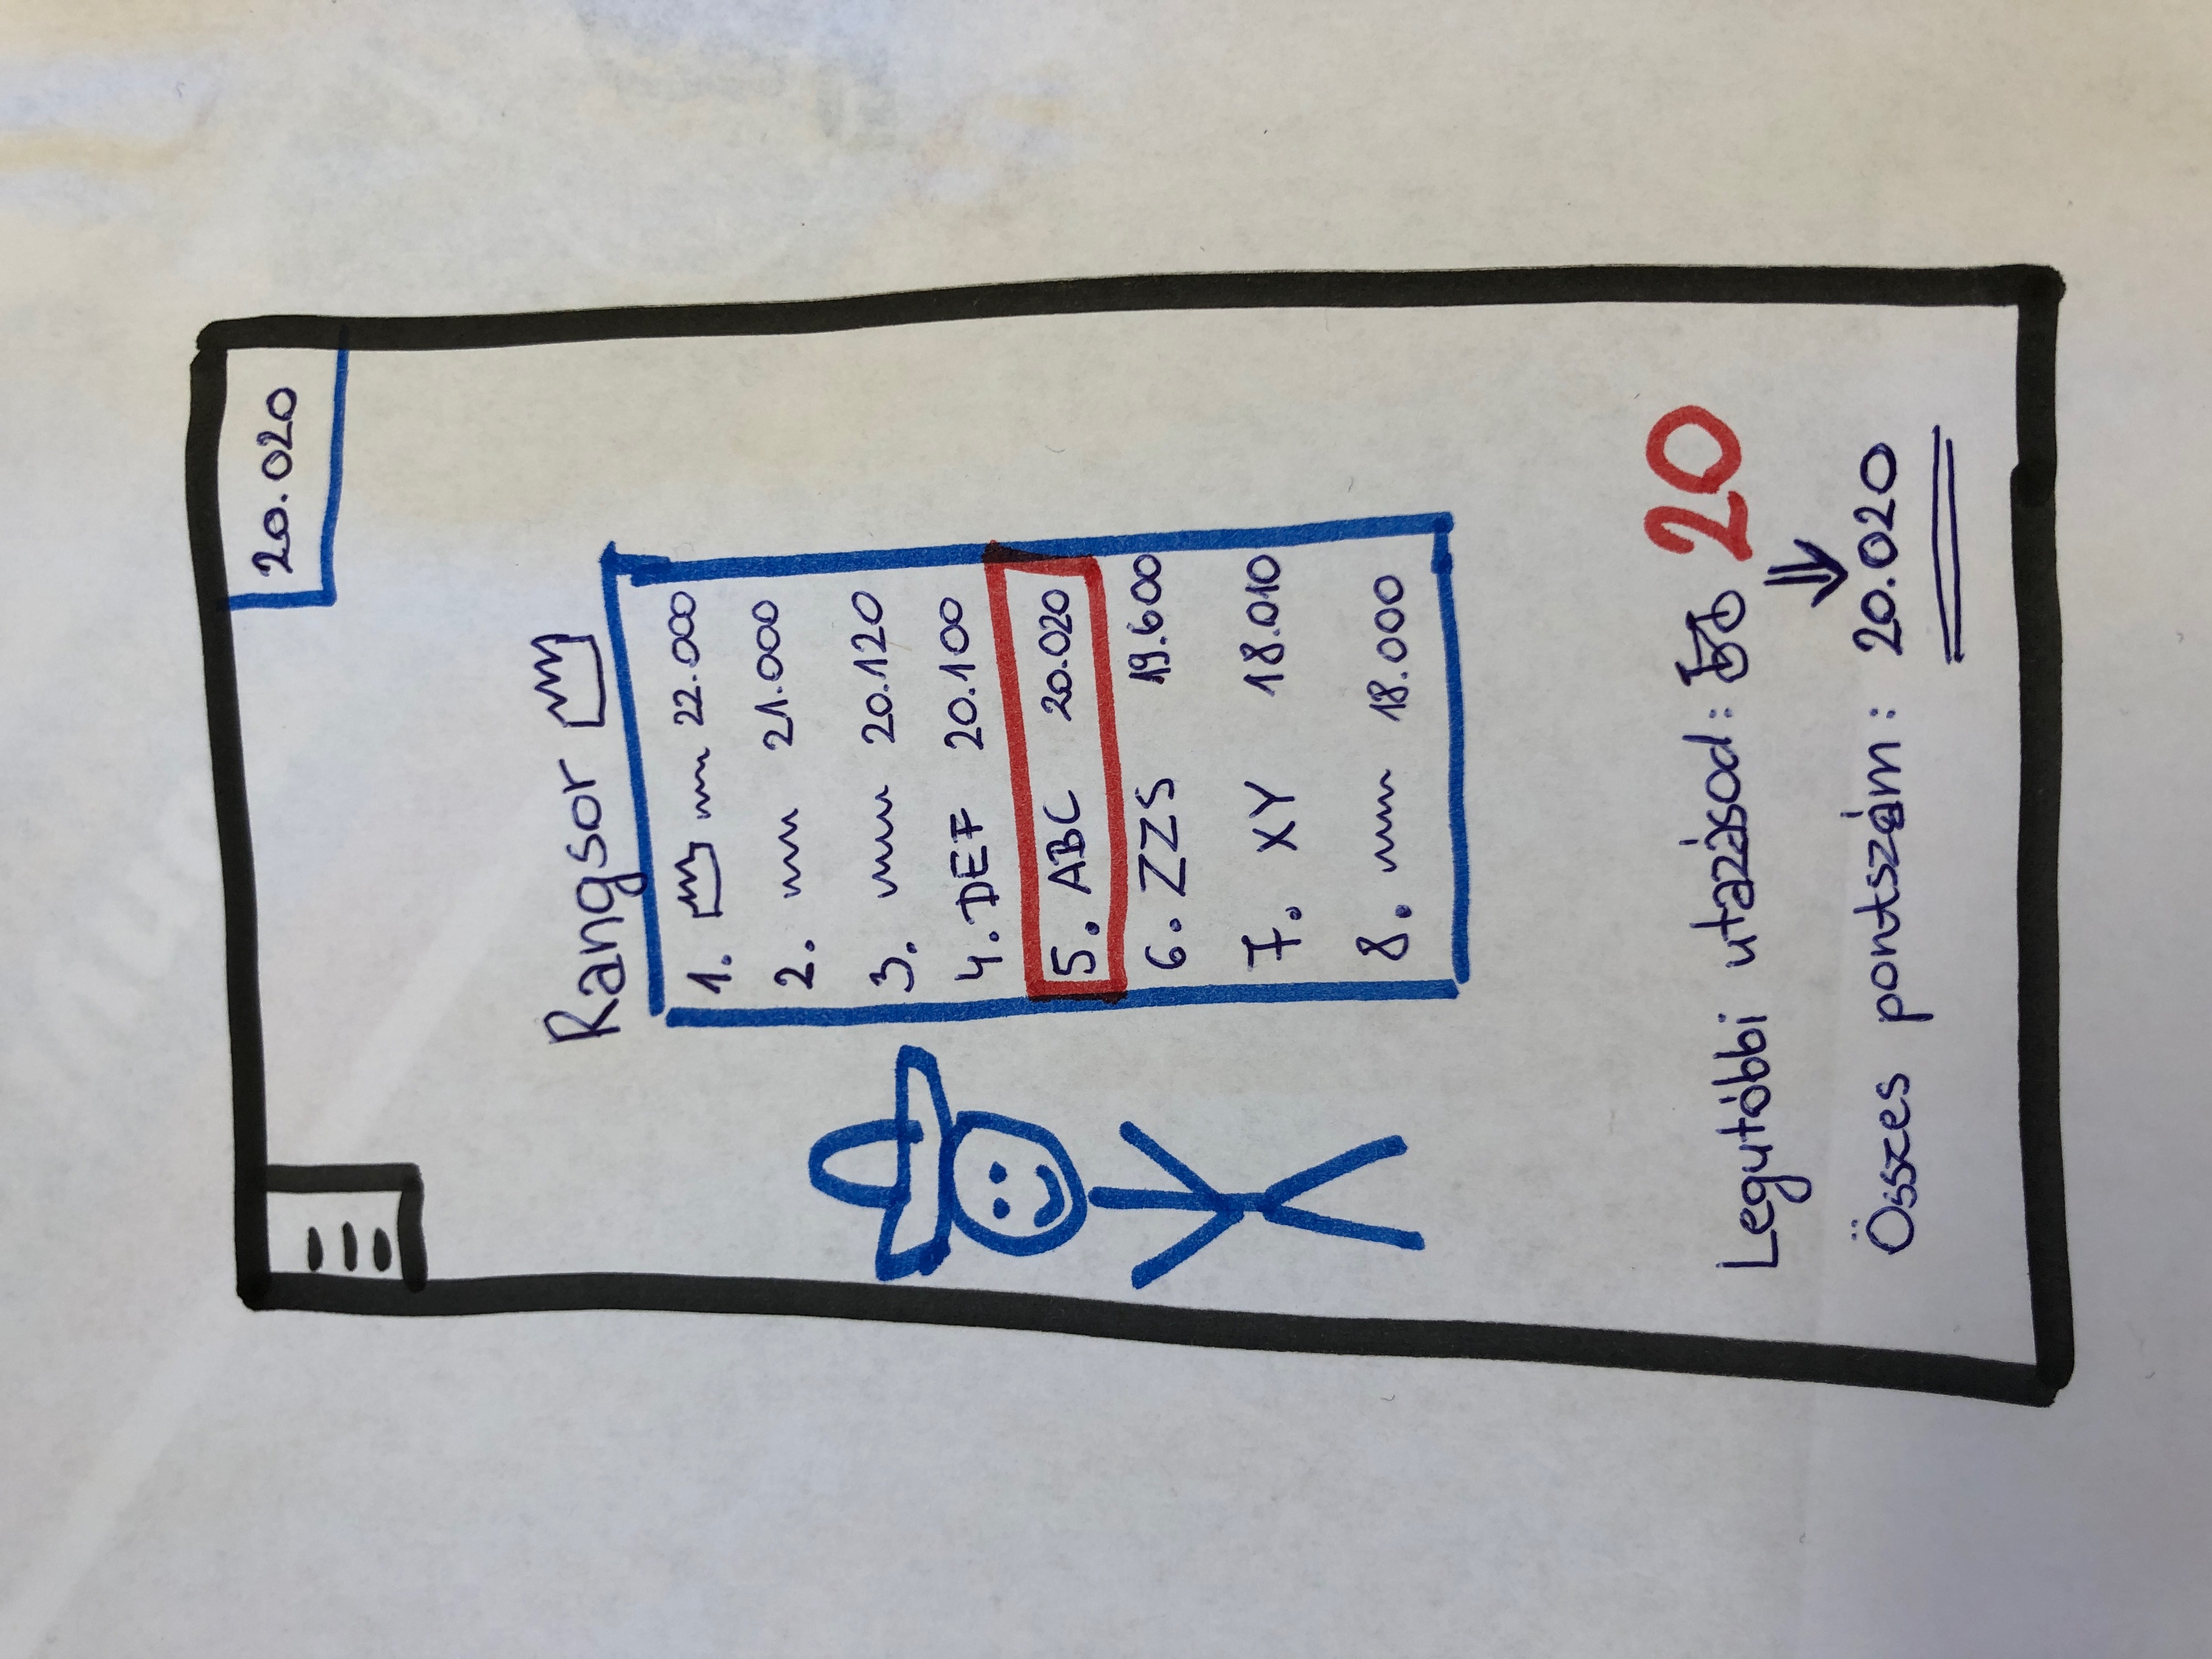 20.020
Rangsor
1. 22.000
2. 21.000
3. 20.120
4. DEF 20.100
5. ABC 20.020
6. ZZS 19.600
7. XY 18.010
8. 18.000
Legutóbbi utazásod: 20
Összes pontszám: 20.020